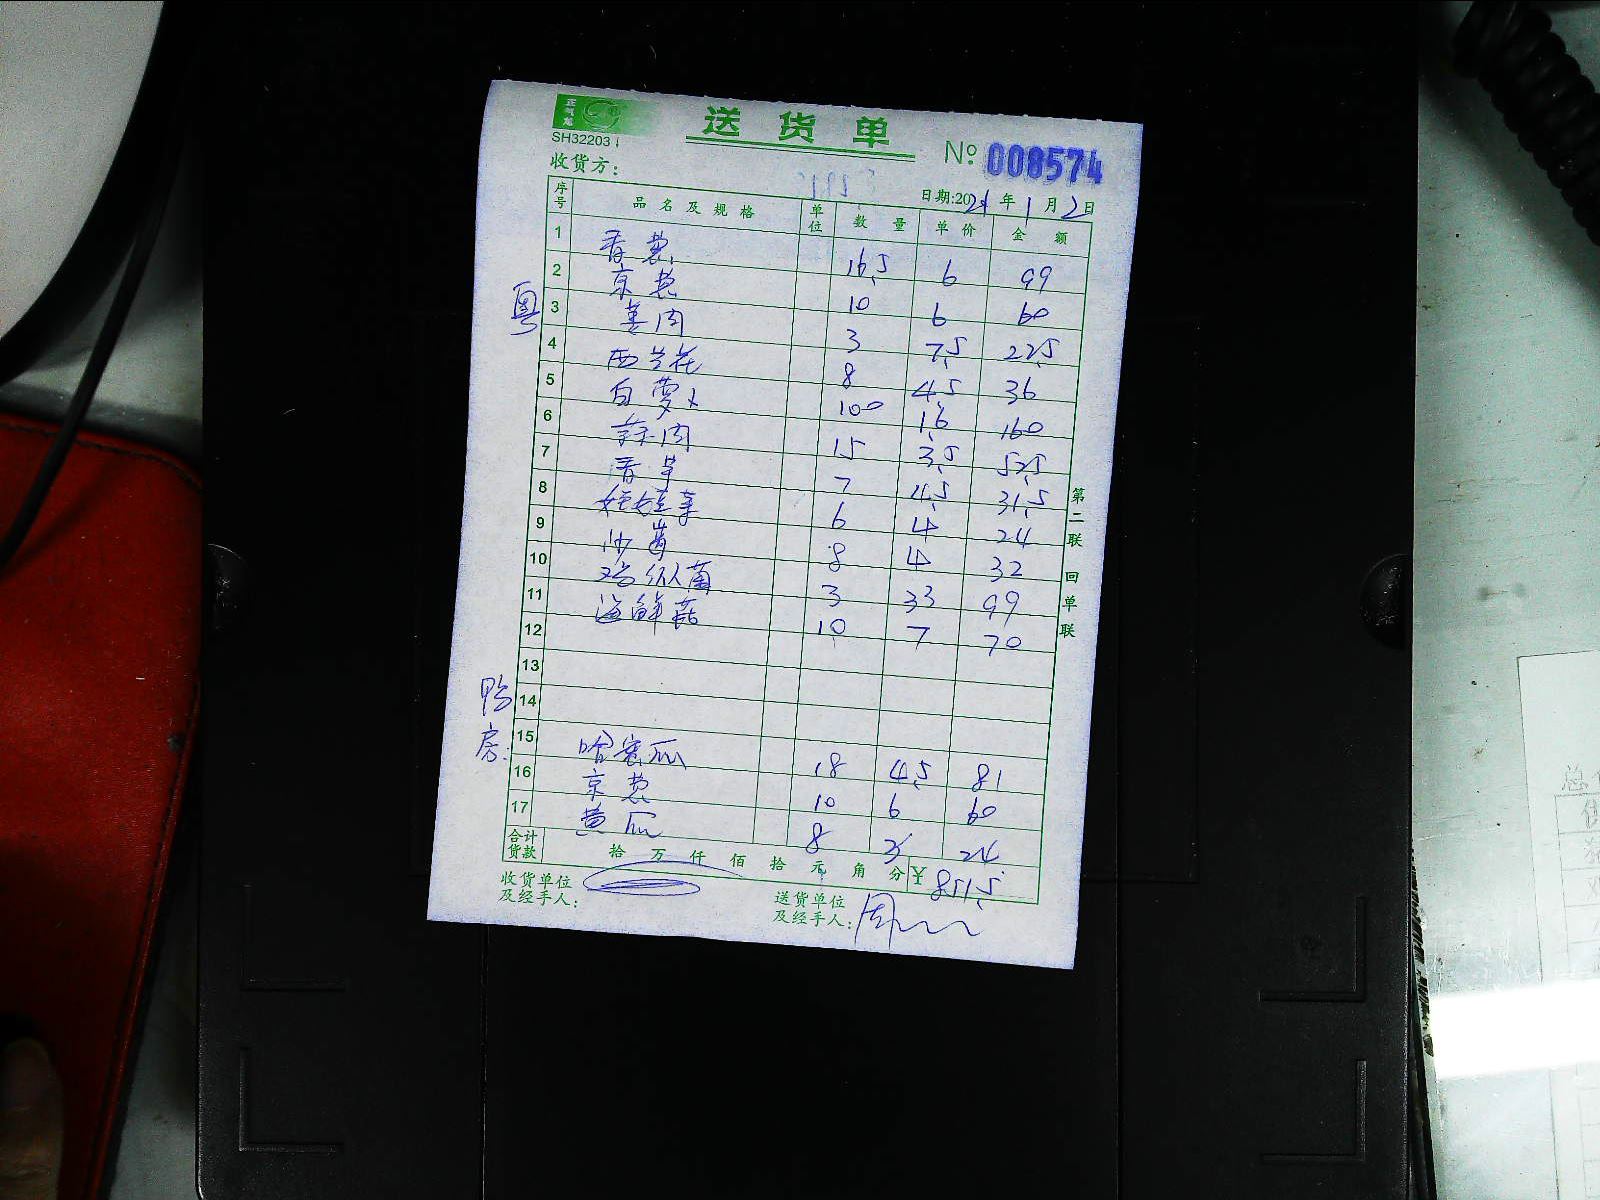 正
送货单
SH32203
№ 008574
收货方:
日期:2024年1月2日
序号 品名及规格 单位 数量 单价 金额
1 香葱 16.5 6 99
2 京葱 10 6 60
粤
3 姜肉 3 7.5 22.5
4 西兰花 8 4.5 36
5 白萝卜 100 1.6 160
6 蒜肉 15 3.5 52.5
7 香芹 7 4.5 31.5
8 娃娃菜 6 4 24
9 沙葛 8 4 32
10 鸡枞菌 3 33 99
11 海鲜菇 10 7 70
12
13
14
鸭房:
15 哈密瓜 18 4.5 81
16 京葱 10 6 60
17 黄瓜 8 3 24
合计货款 拾 万 仟 佰 拾 元 角 分 ¥ 851.5
收货单位及经手人:
送货单位及经手人: 周
第二联 回单联